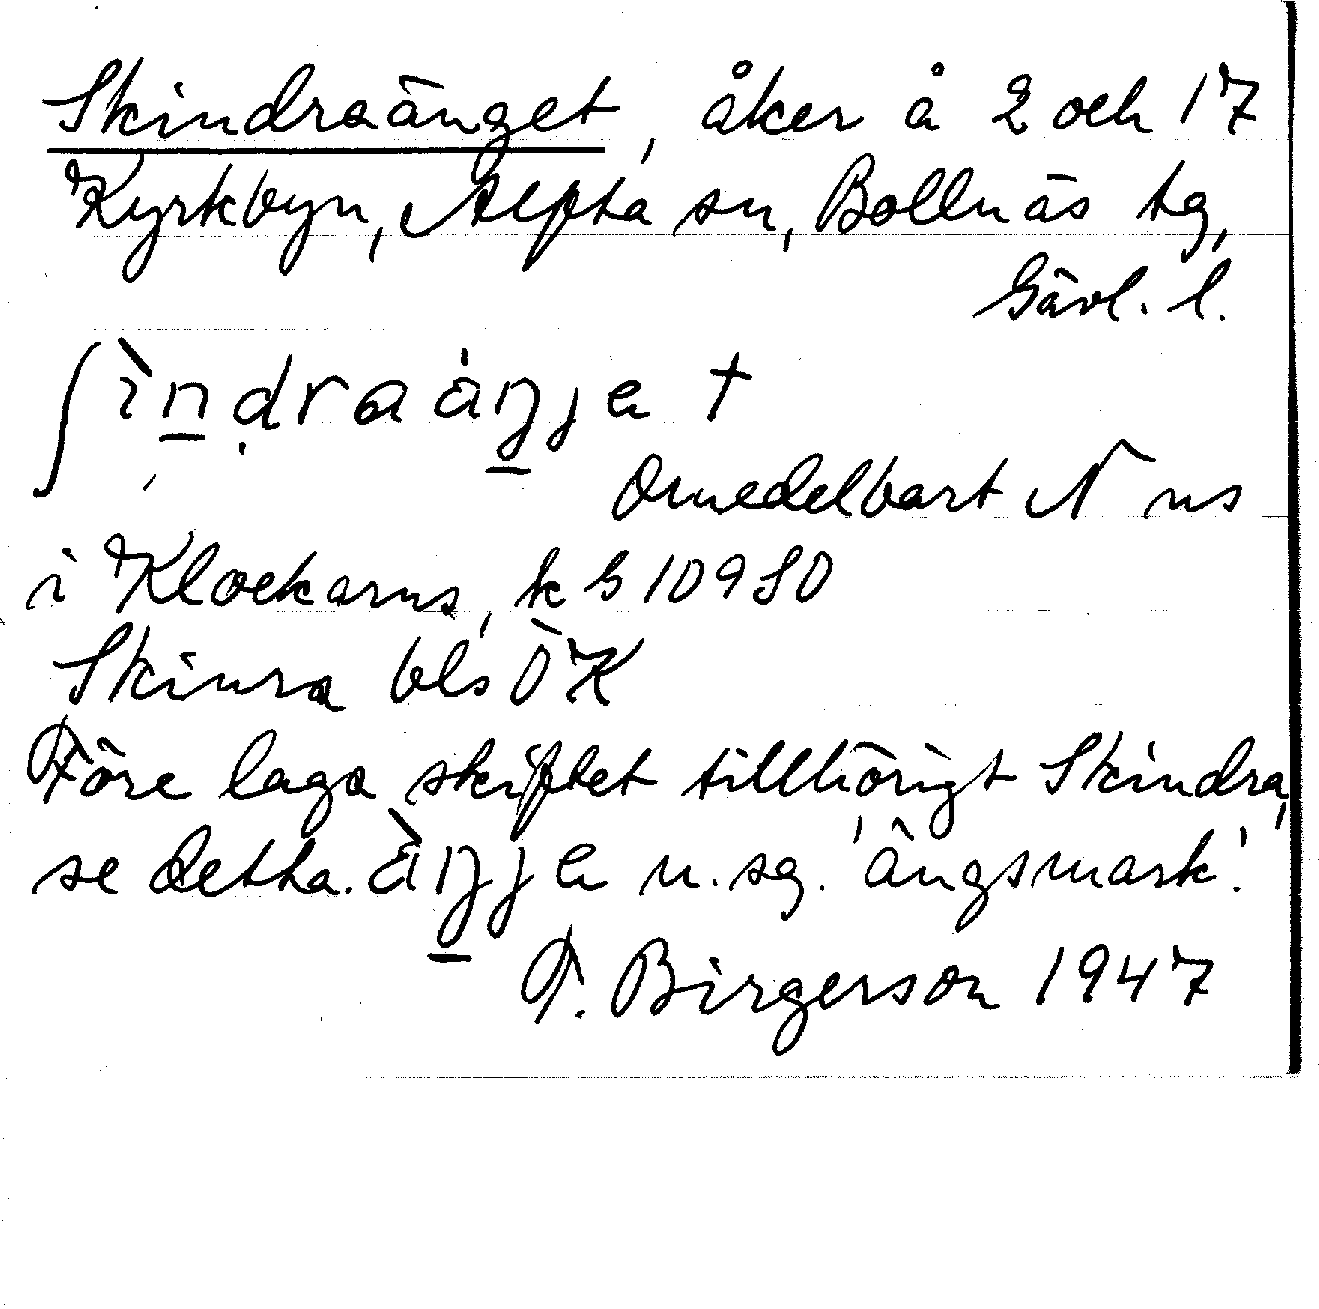 Skindraänget, åker å 2 och 17
Kyrkbyn, Alfta sn, Bollnäs tg,
Gävl. l.
ʃìndraáŋje †
Omedelbart N ns
i Klockarns, k G 10980
Skinra bls ÖK
Före laga skiftet tillhörigt Skindra,
se detta. àŋje n. sg. 'ängsmark'.
F. Birgerson 1947